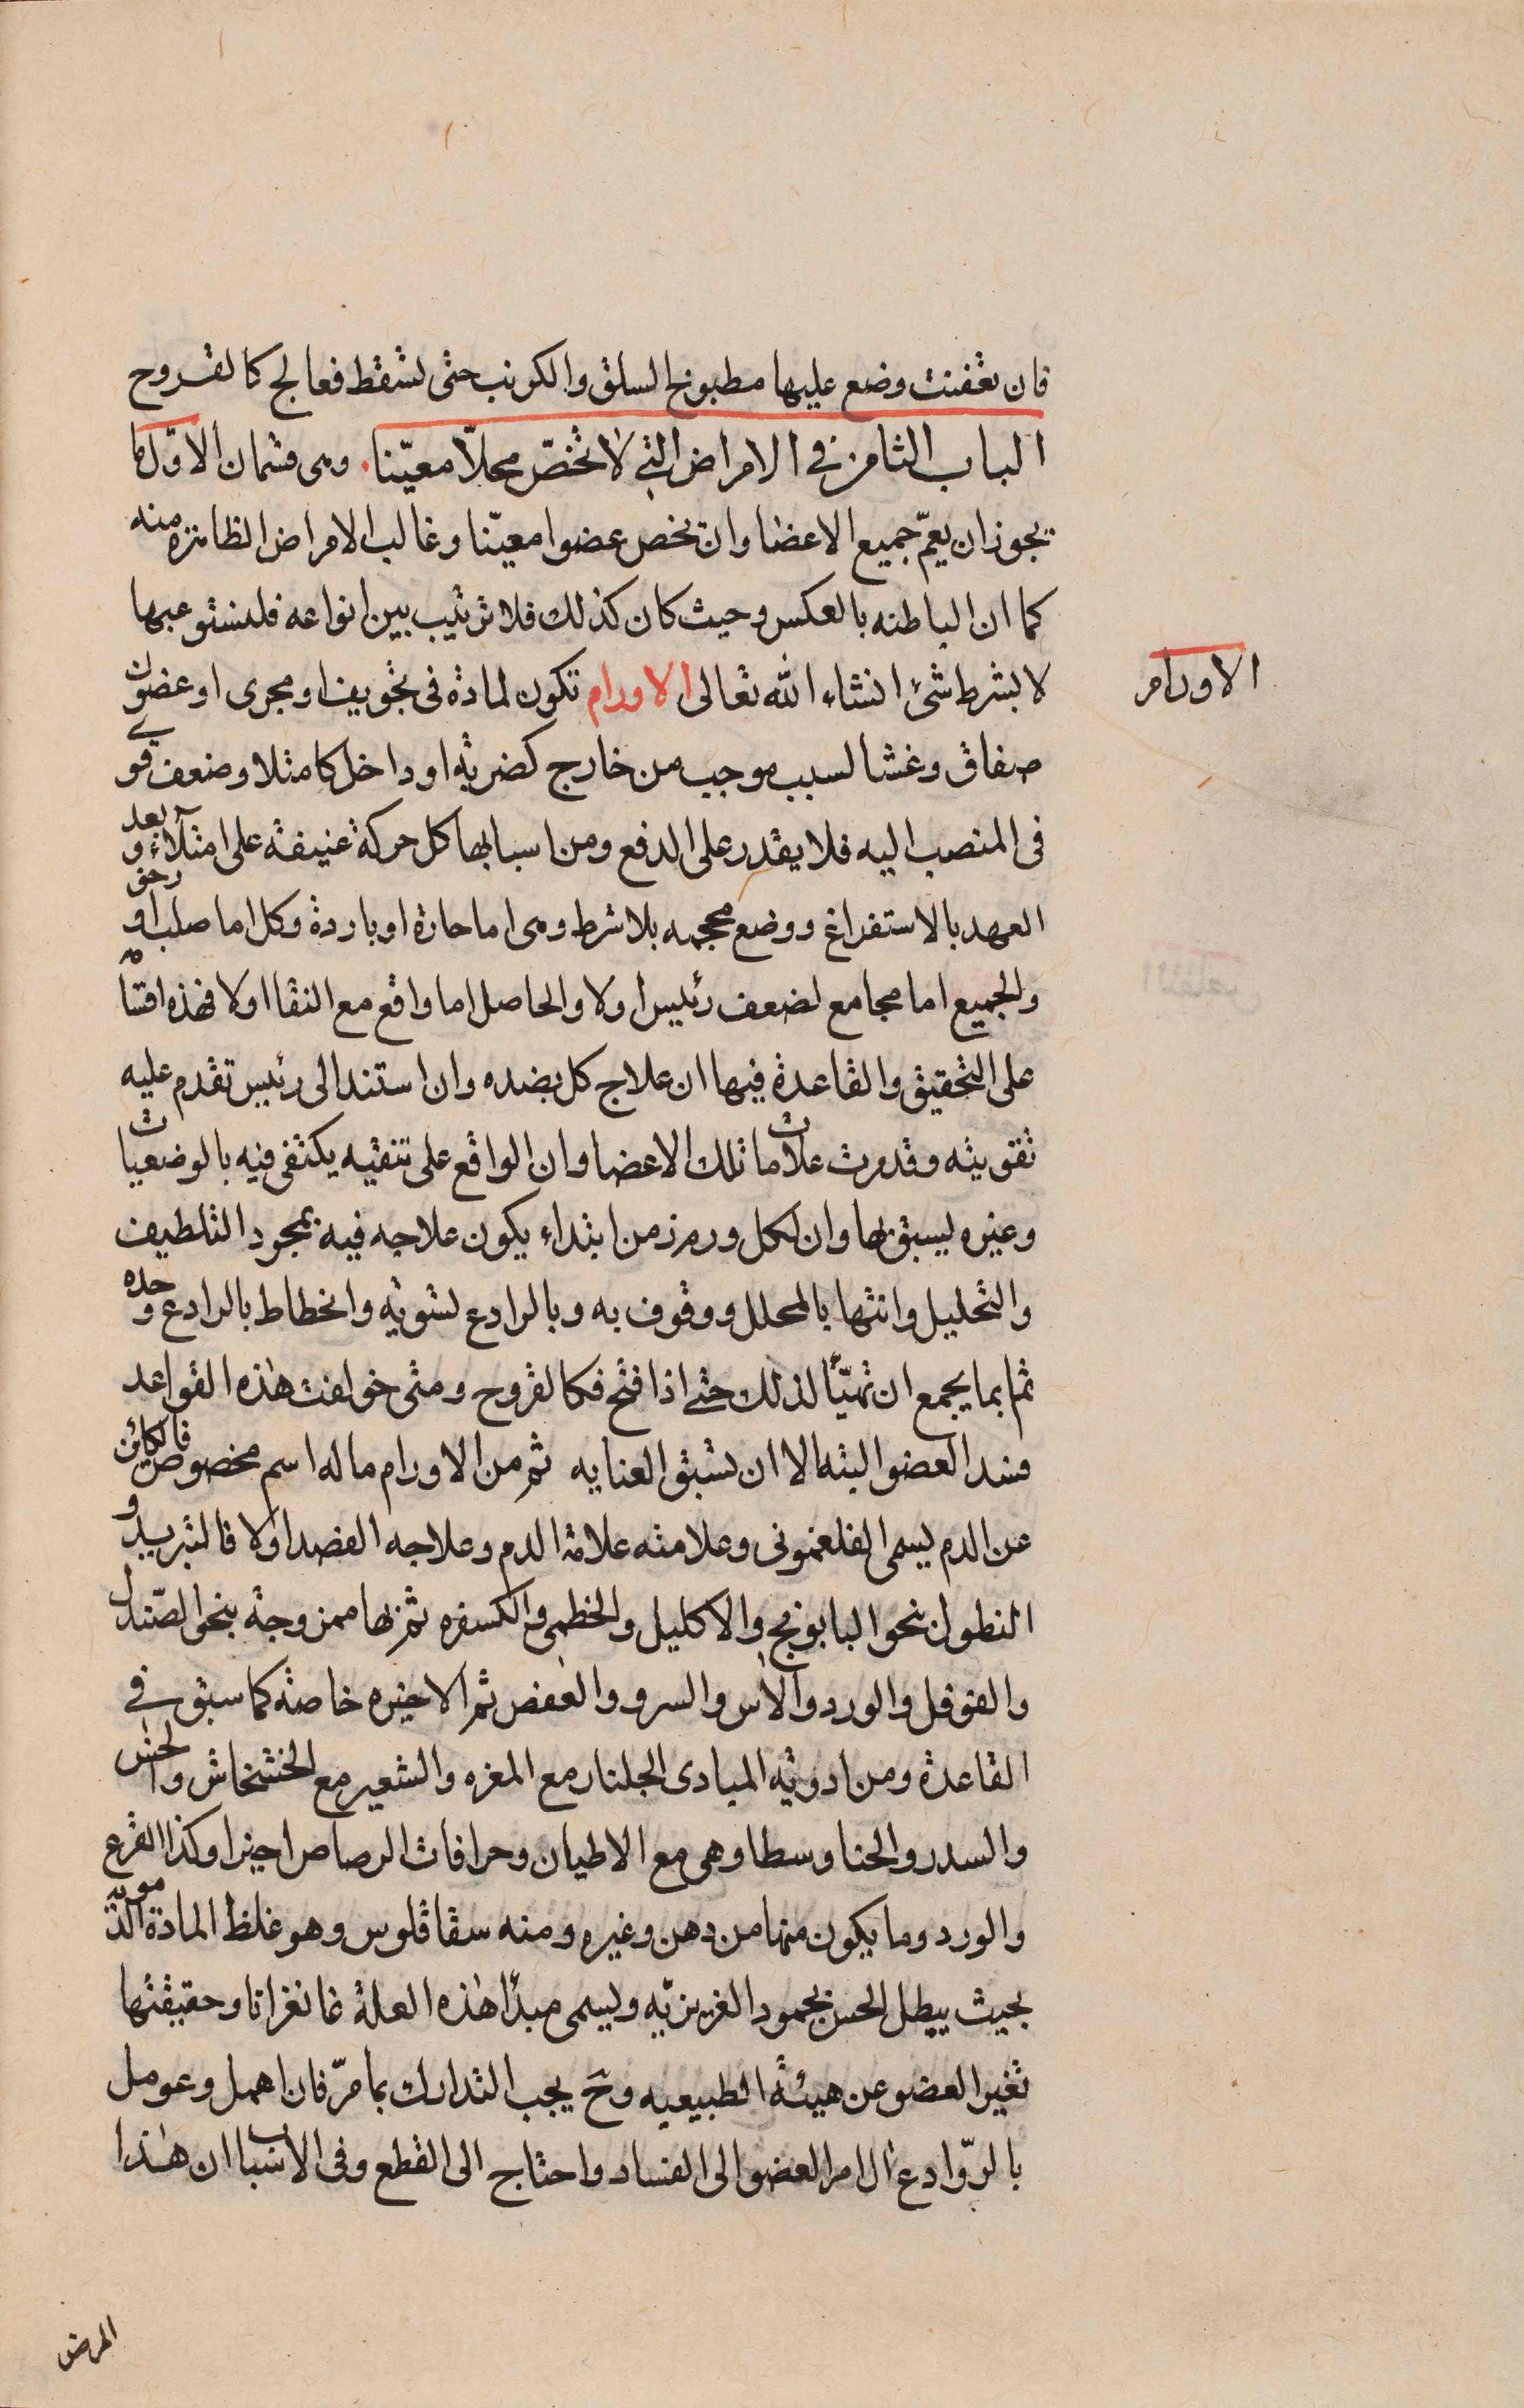 فان تعفنت وضع عليها مطبوخ السلق والكرنب حتى تسقط فعالج كالقروح
الباب الثامن في الامراض التي لا تخصّ محلّا معيّنا. وهى قسمان الاوّل ما
يجوز ان يعمّ جميع الاعضا وان يخص عضوا معيّنا وغالب الامراض الظاهرة منه
كما ان الباطنه بالعكس وحيث كان كذلك فلا ترتيب بين انواعه فلنستوعبها
لا بشرط شئ انشاء الله تعالى الاورام تكون لمادة فى تجويف او مجرى او عضو ان
الاورام
صفاق وغشا لسبب موجب من خارج كضربة او داخل كامتلا وضعف قوى
فى المنصب اليه فلا يقدر على الدفع ومن اسبابها كل حركة عنيفة على امتلاء وبعد
العهد بالاستفراغ ووضع محجمه بلا شرط وهى اما حارة او باردة وكل اما صلب او رخو
والجميع اما مجامع لضعف رئيس اولا والحاصل اما واقع مع النقا اولا فهذه اقسامه
على التحقيق والقاعدة فيها ان علاج كل بضده وان استند الى رئيس تقدم عليه
تقويته وقد مرت علامات تلك الاعضا وان الواقع على تنقيه يكتفى فيه بالوضعيات
وغيره يسبق بها وان لكل ورم زمن ابتداء يكون علاجه فيه بمجرد التلطيف
والتحليل وانتها بالمحلل ووقوف به وبالرادع لتسويه وانحطاط بالرادع وحده
ثم بما يجمع ان تهيّأ لذلك حتى اذا فتح فكالقروح ومتى خولفت هذه القواعد
فسد العضو البته الا ان تسبق العنايه ثم من الاورام ما له اسم مخصوص فالكائن
عن الدم يسمى الفلغمونى وعلامته علامة الدم وعلاجه الفصد اولا فالتبريد و
النطول بنحو البابونج والاكليل والخطمى والكسفره ثم بها ممزوجة بنحو الصّندل
والفوفل والورد والآس والسرو والعفص ثم الاخيره خاصة كما سبق في
القاعدة ومن ادوية المبادى الجلنار مع المغره والشعير مع الخشخاش والخس
والسدر والحنا وسطا وهى مع الاطيان وحرافات الرصاص اخيرا وكذا القرع
والورد وما يكون منها من دهن وغيره ومنه سقاقلوس وهو غلظ المادة الدّمويه
بحيث يبطل الحس بجمود الغريزيّه ويسمى مبدأ هذه العلة غانغرانا وحقيقتها
تغير العضو عن هيئة الطبيعيه وح يجب التدارك بما مرّ فان اهمل وعومل
بالرّوادع ال امر العضو الى الفساد واحتاج الى القطع وفى الاسباب ان هذا
المرض